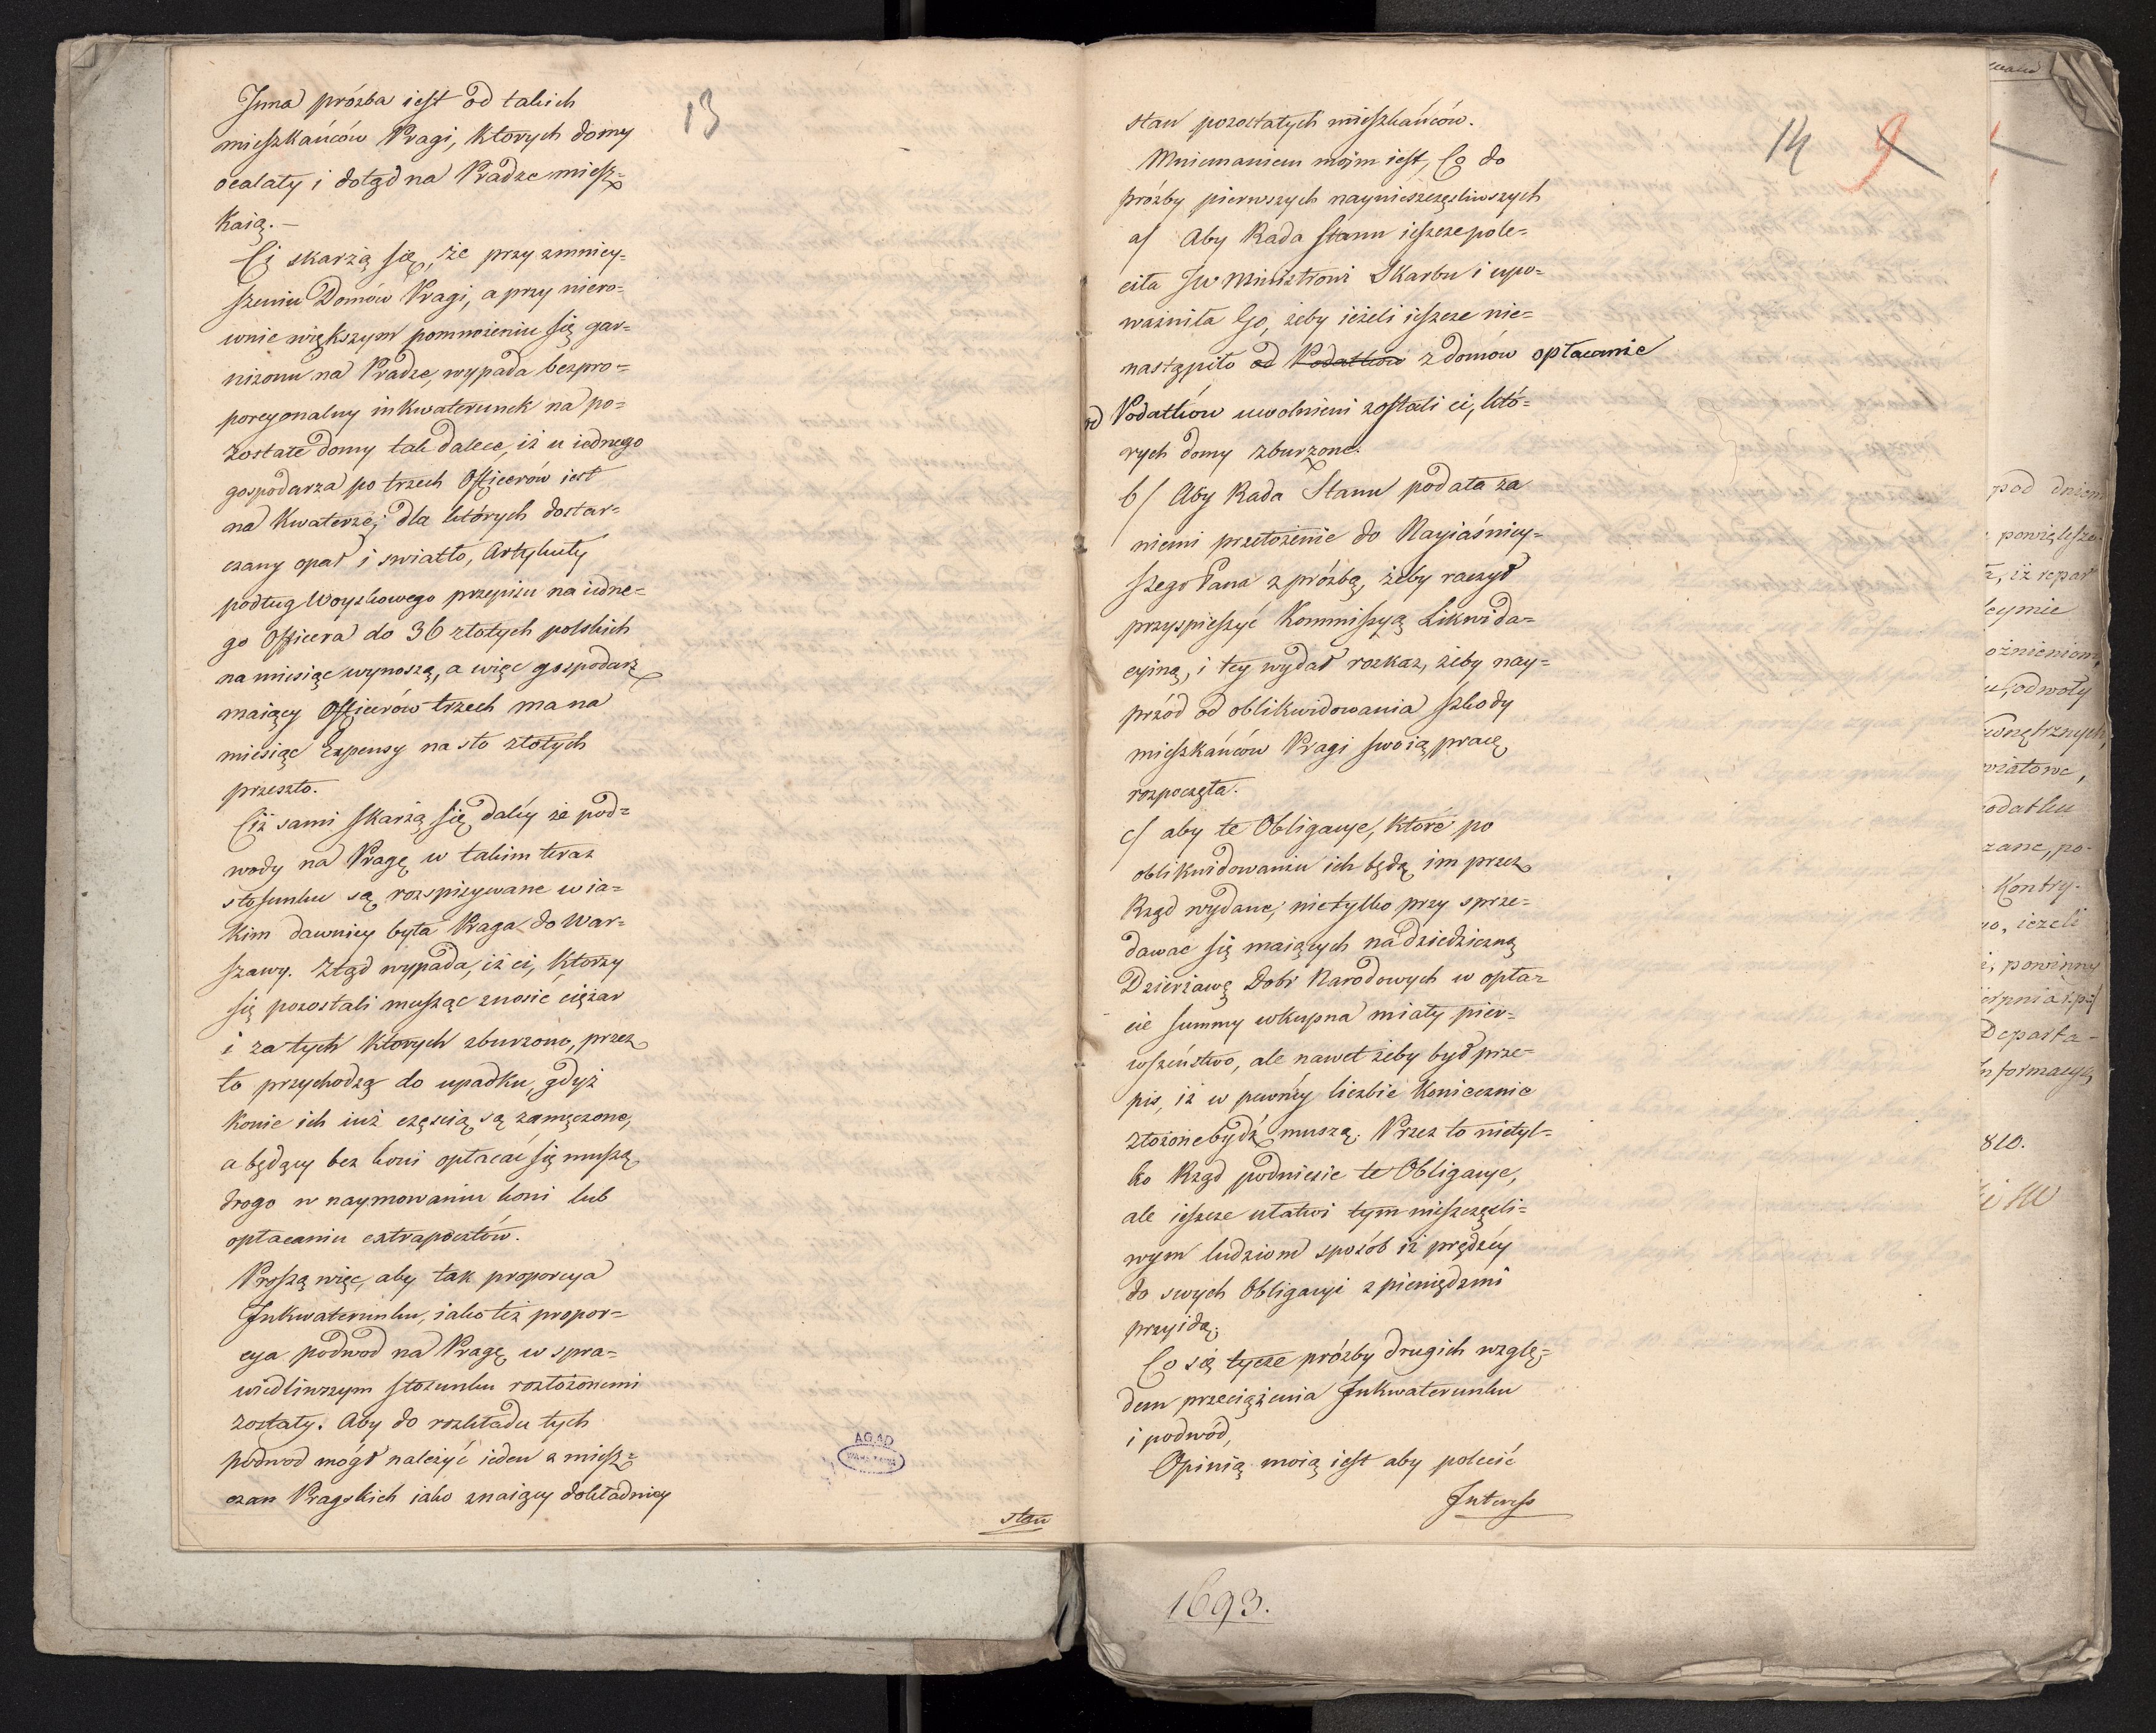 13
Inna próźba iest od takich
mieszkańców Pragi, ktorych domy
ocalały i dotąd na Pradze miesz=
kaią.—
Ci skarżą się, że przy zmniey=
szeniu Domów Pragi, a przy niero=
wnie większym pomnożeniu się gar=
nizonu na Pradze, wypada bezpro=
porcyonalny inkwaterunek na po=
zostałe domy tak dalece, iż u iednego
gospodarza po trzech Officerów iest
na Kwaterze, dla których dostar=
czany opał i swiatło, Artykuły
podług Woyskowego przepisu na iedne=
go Officera do 36 złotych polskich
na miesiąc wynoszą, a więc gospodarz
maiący Officerów trzech ma na
miesiąc Expensy na sto złotych
przeszło.
Ciż sami skarżą się daléy że pod=
wody na Pragę w takim teraz
stosunku są rozpisywane w ia=
kim dawniey była Praga do War=
szawy. Ztąd wypada, iż ci, ktorzy
się pozostali musząc znosic ciężar
i za tych ktorych zburzono, przez
to przychodzą do upadku, gdyż
konie ich iuż częścią są zamęczone,
a będący bez koni opłacać się muszą
drogo w naymowaniu koni lub
opłacaniu extrapocztów.
Proszą więc, aby tak proporcya
Inkwaterunku, iako też propor=
cya podwod na Pragę w spra=
wiedliwszym stosunku rozłożonemi
zostały. Aby do rozkładu tych
podwod mógł należyć ieden z miesz=
czan Pragskich iako znaiący dokładniey
stan
AGAD
14 9
stan pozostałych mieszkańców.
Mniemaniem moim iest, Co do
próźby pierwszych naynieszczęśliwszych
a/ Aby Rada Stanu ieszcze pole=
ciła JW Ministrowi Skarbu i upo=
ważniła Go, żeby ieżeli ieszcze nie=
nastąpiło od Podatków z domów opłacanie
od Podatków uwolnieni zostali ci, któ=
rych domy zburzone.
b/ Aby Rada Stanu podała za
niemi przełożenie do Nayiaśniey=
szego Pana z próźbą, żeby raczył
przyspieszyć Kommissyą Likwida=
cyiną, i tey wydał rozkaz, żeby nay=
przód od oblikwidowania szkody
mieszkańców Pragi swoią pracę
rozpoczęła.
c/ aby te Obligacye, które po
oblikwidowaniu ich będą im przez
Rząd wydane, nietylko przy sprze=
dawać się maiących na dziedziczną
Dzierżawę Dobr Narodowych w opła=
cie summy wkupna miały pier=
wszeństwo, ale nawet żeby był prze=
pis, iż w pewnéy liczbie koniecznie
złożone bydź muszą. Przez to nietyl=
ko Rząd podniesie te Obligacye,
ale ieszcze ułatwi tym nieszczęśli=
wym ludziom sposób iż prędzéy
do swych Obligacyi z pieniędzmi
przyidą.
Co się tycze próźby drugich wzglę=
dem przeciążenia Inkwaterunku
i podwód,
Opinią moią iest aby polecić
Interess
1693.
pod dniem
powiększe
iż repar
u, odwoły
wnętrznych,
odatku
zane, po=
Kontry=
ieżeli
powinny
Departa=
nformacyą
810.